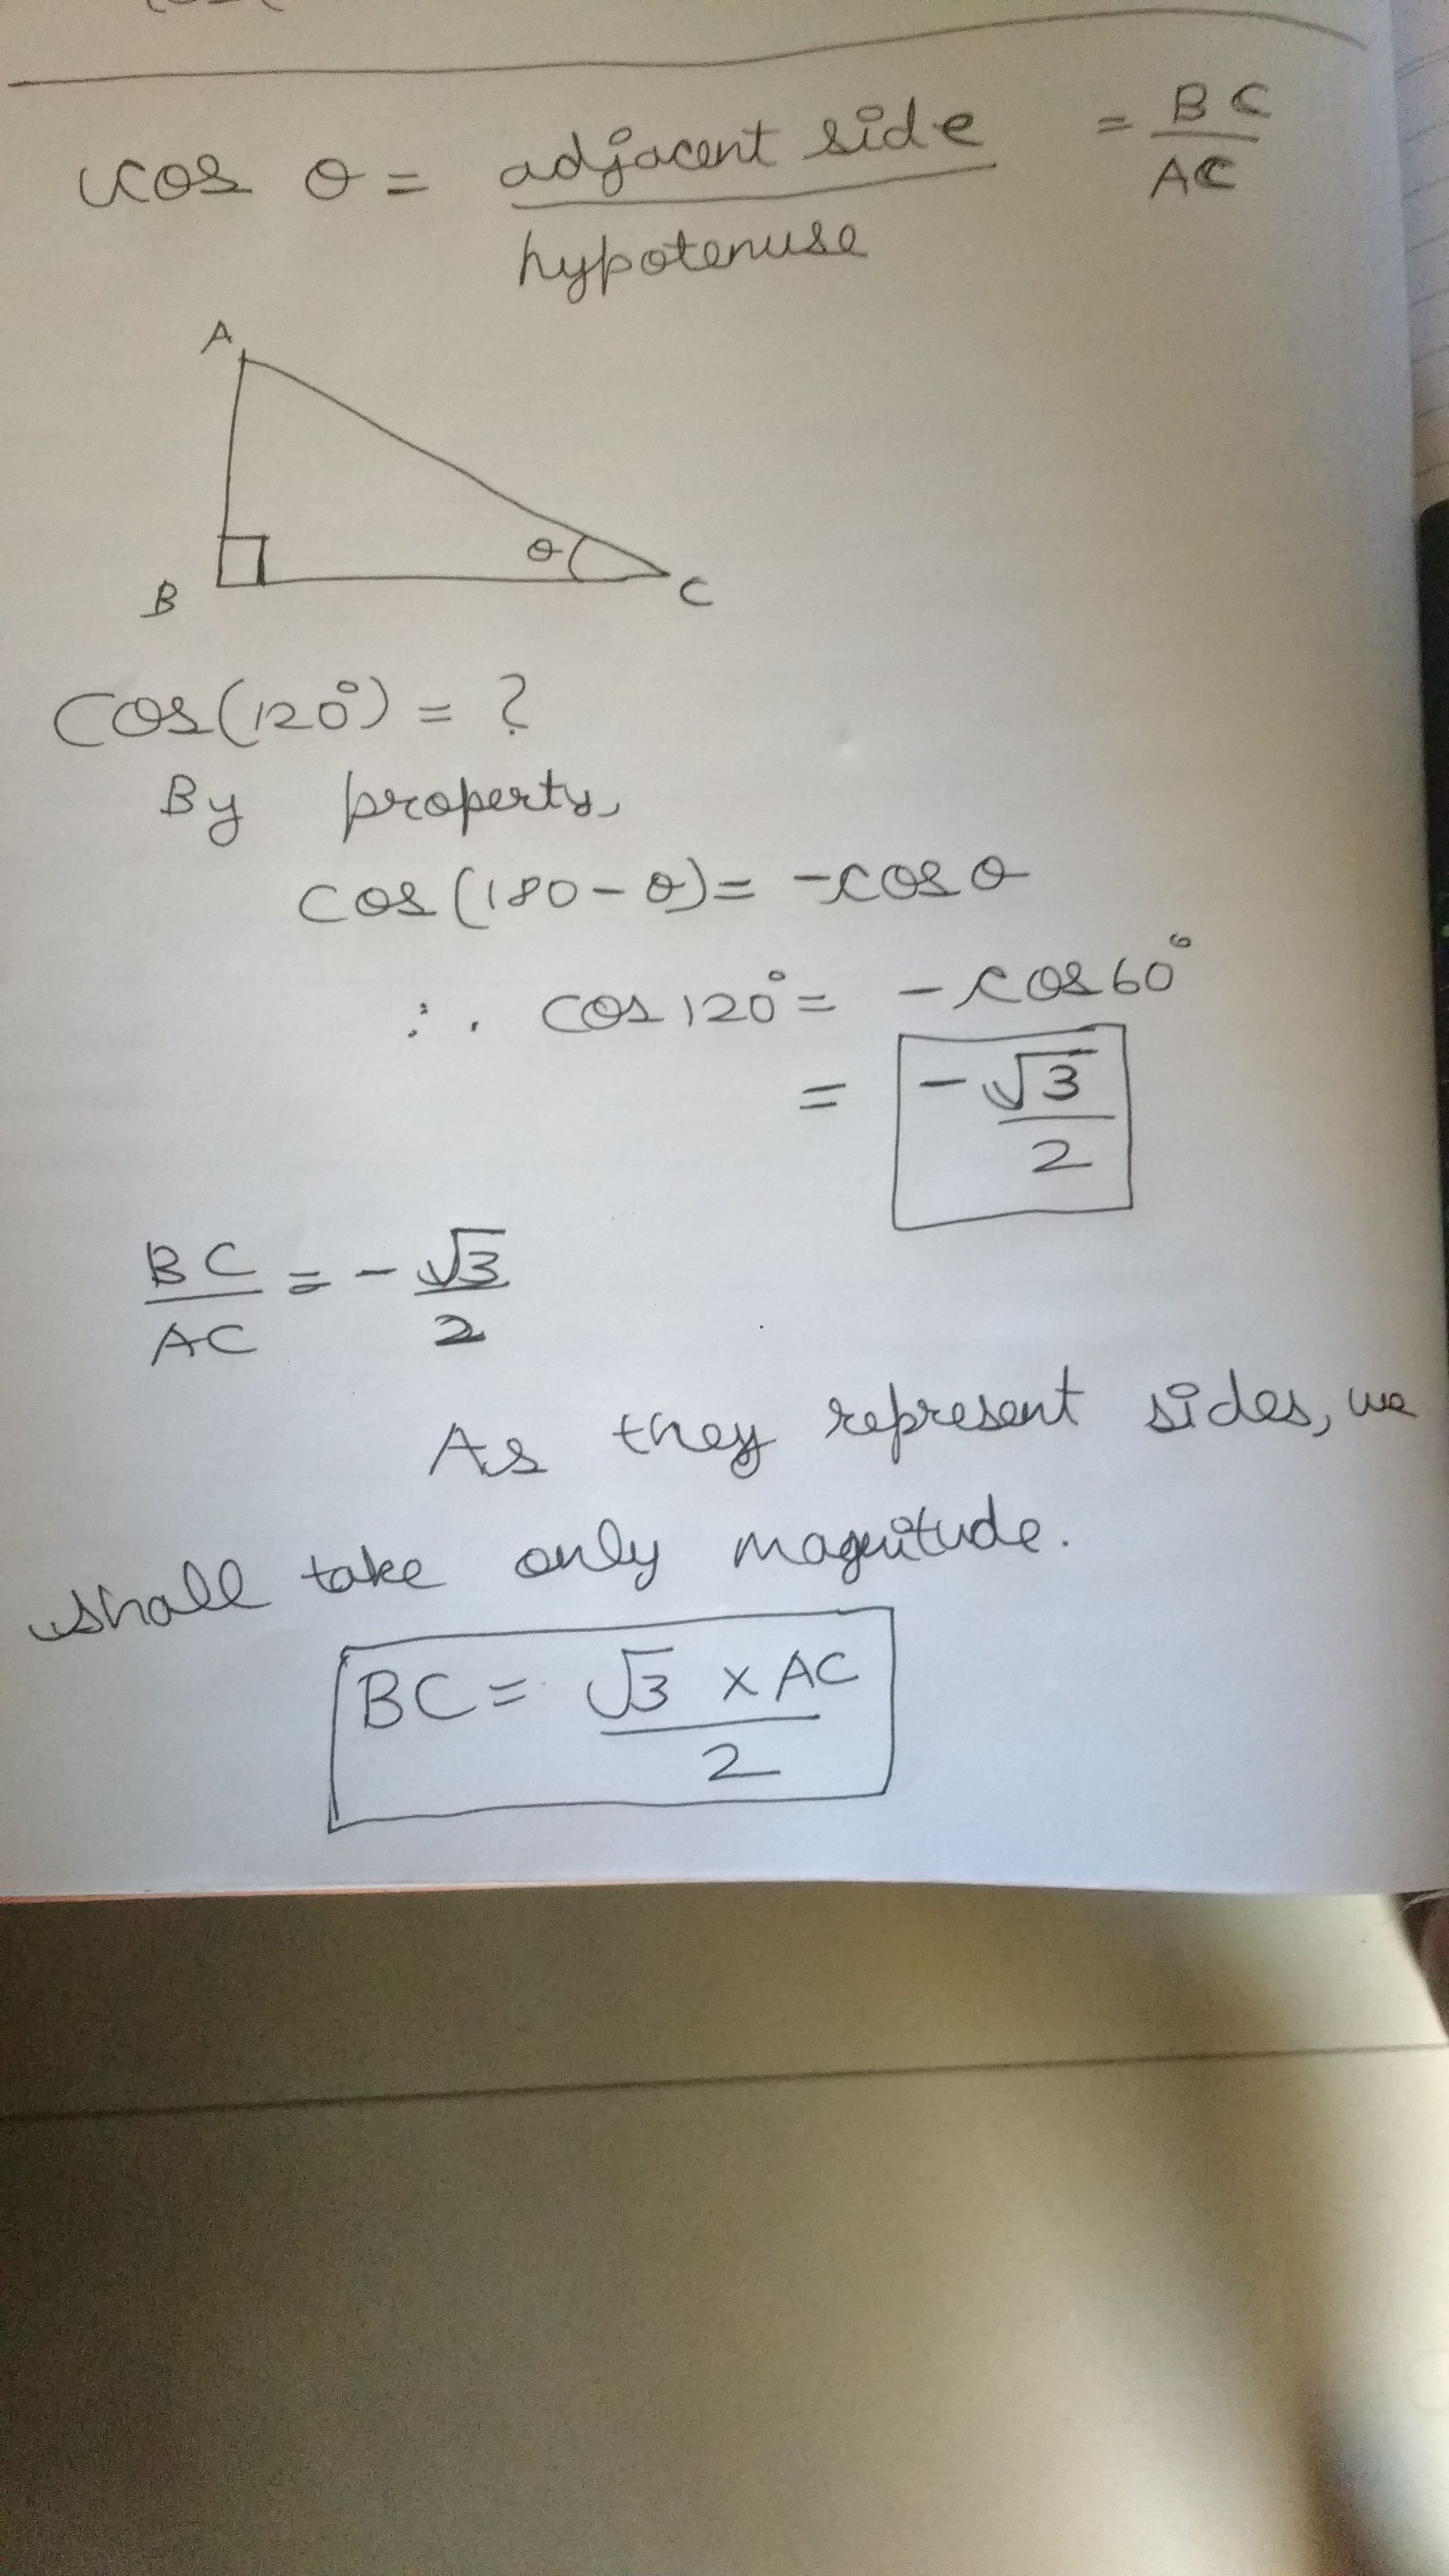 cos θ = adjacent side / hypotenuse = BC / AC
A
θ
B
C
Cos(120°) = ?
By property,
cos(180 - θ) = -cos θ
∴ cos 120° = - cos 60°
= -√3 / 2
BC / AC = - √3 / 2
As they represent sides, we
shall take only magnitude.
BC = √3 × AC / 2